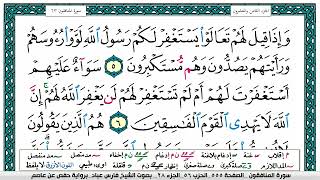 وَإِذَا قِيلَ لَهُمْ تَعَالَوْا۟ يَسْتَغْفِرْ لَكُمْ رَسُولُ ٱللَّهِ لَوَّوْا۟ رُءُوسَهُمْ
وَرَأَيْتَهُمْ يَصُدُّونَ وَهُم مُّسْتَكْبِرُونَ ٥ سَوَآءٌ عَلَيْهِمْ
أَسْتَغْفَرْتَ لَهُمْ أَمْ لَمْ تَسْتَغْفِرْ لَهُمْ لَن يَغْفِرَ ٱللَّهُ لَهُمْ إِنَّ
ٱللَّهَ لَا يَهْدِى ٱلْقَوْمَ ٱلْفَـٰسِقِينَ ٦ هُمُ ٱلَّذِينَ يَقُولُونَ
سورة المنافقون الصفحة ٥٥٥ الحزب ٥٦ الجزء ٢٨ بصوت الشيخ فارس عباد برواية حفص عن عاصم